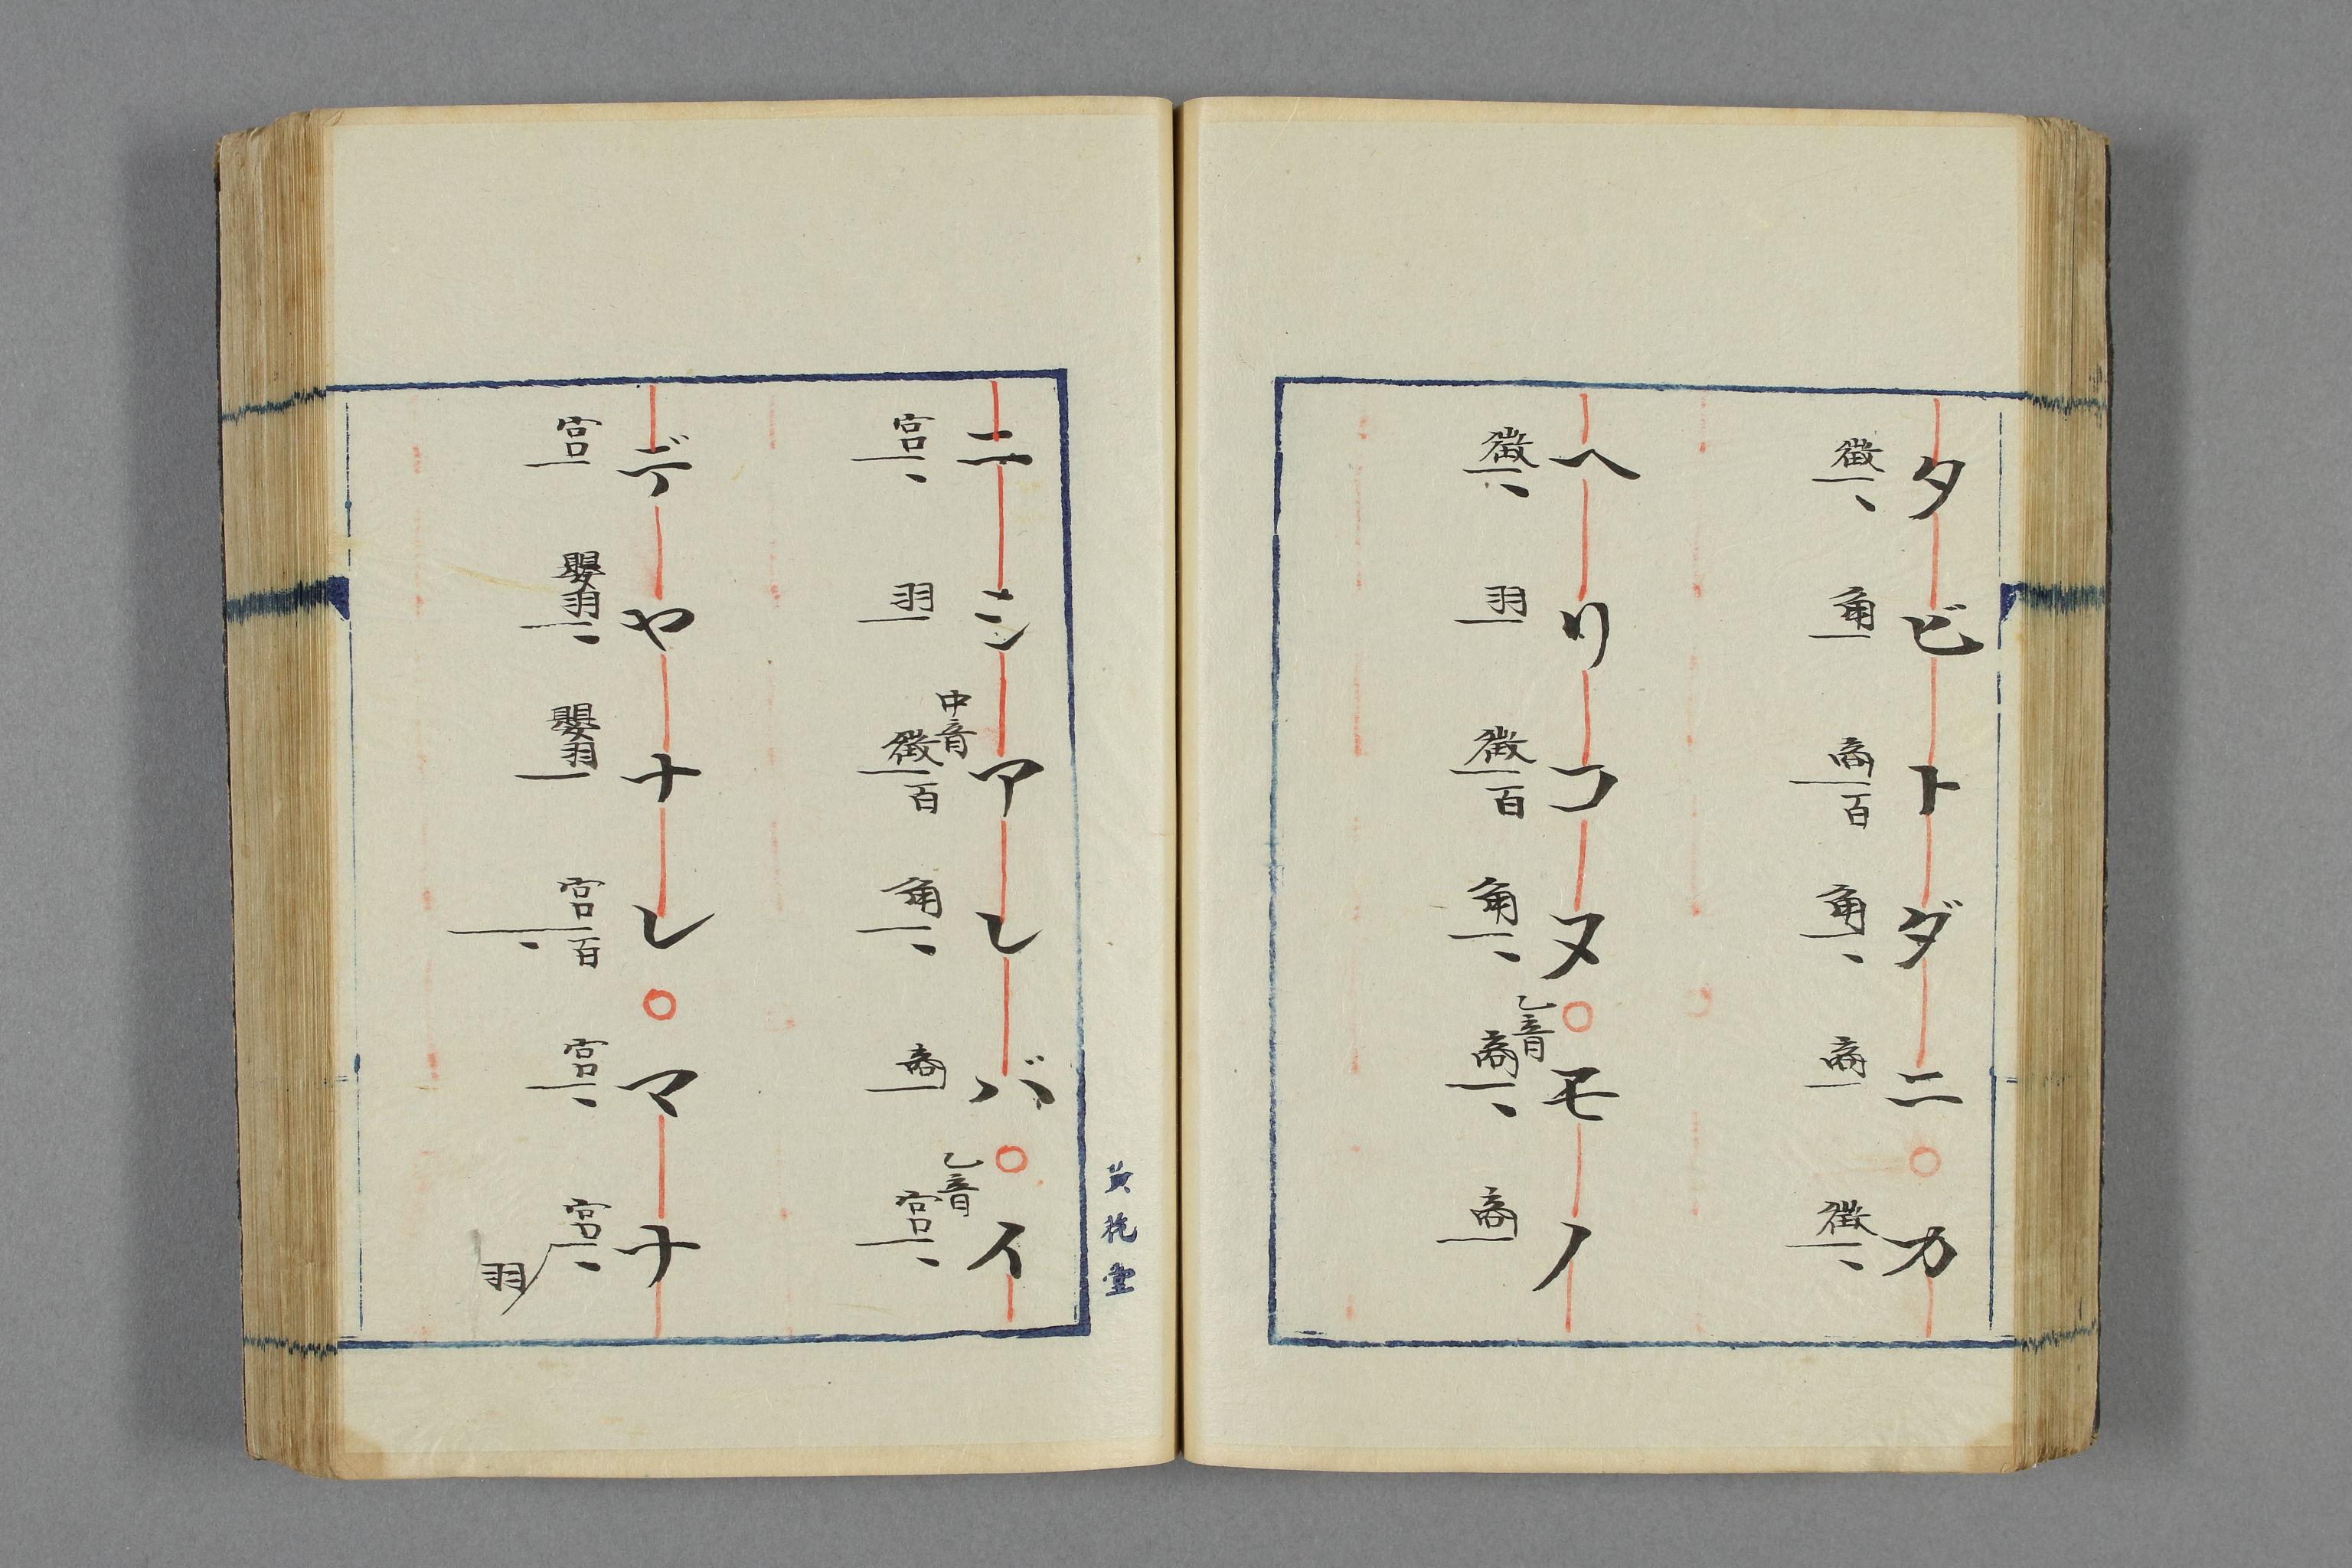 タビトダニカ
徴 角 商百 角 商 徴
ヘリコヌモノ
徴 羽 徴百 角 乙音商 商
ニシアレバイ
宮 羽 中音徴百 角 商 乙音宮
デヤナレマナ
宮 嬰羽 嬰羽 宮百 宮 宮羽